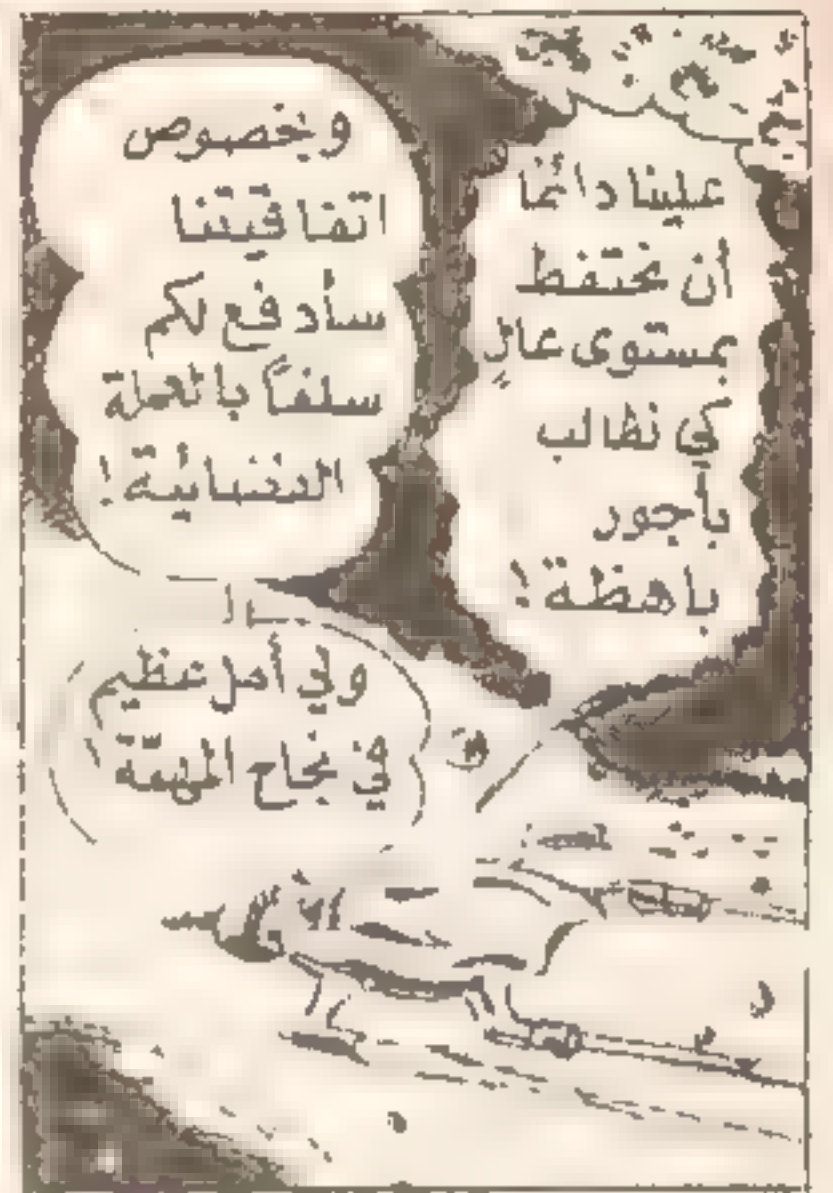 علينا دائمًا
أن نحتفظ
بمستوى عالٍ
كي نطالب
بأجور
باهظة!
وبخصوص
اتفاقيتنا
سأدفع لكم
سلفًا بالعملة
الفضائية!
ولي أمل عظيم
في نجاح المهمّة